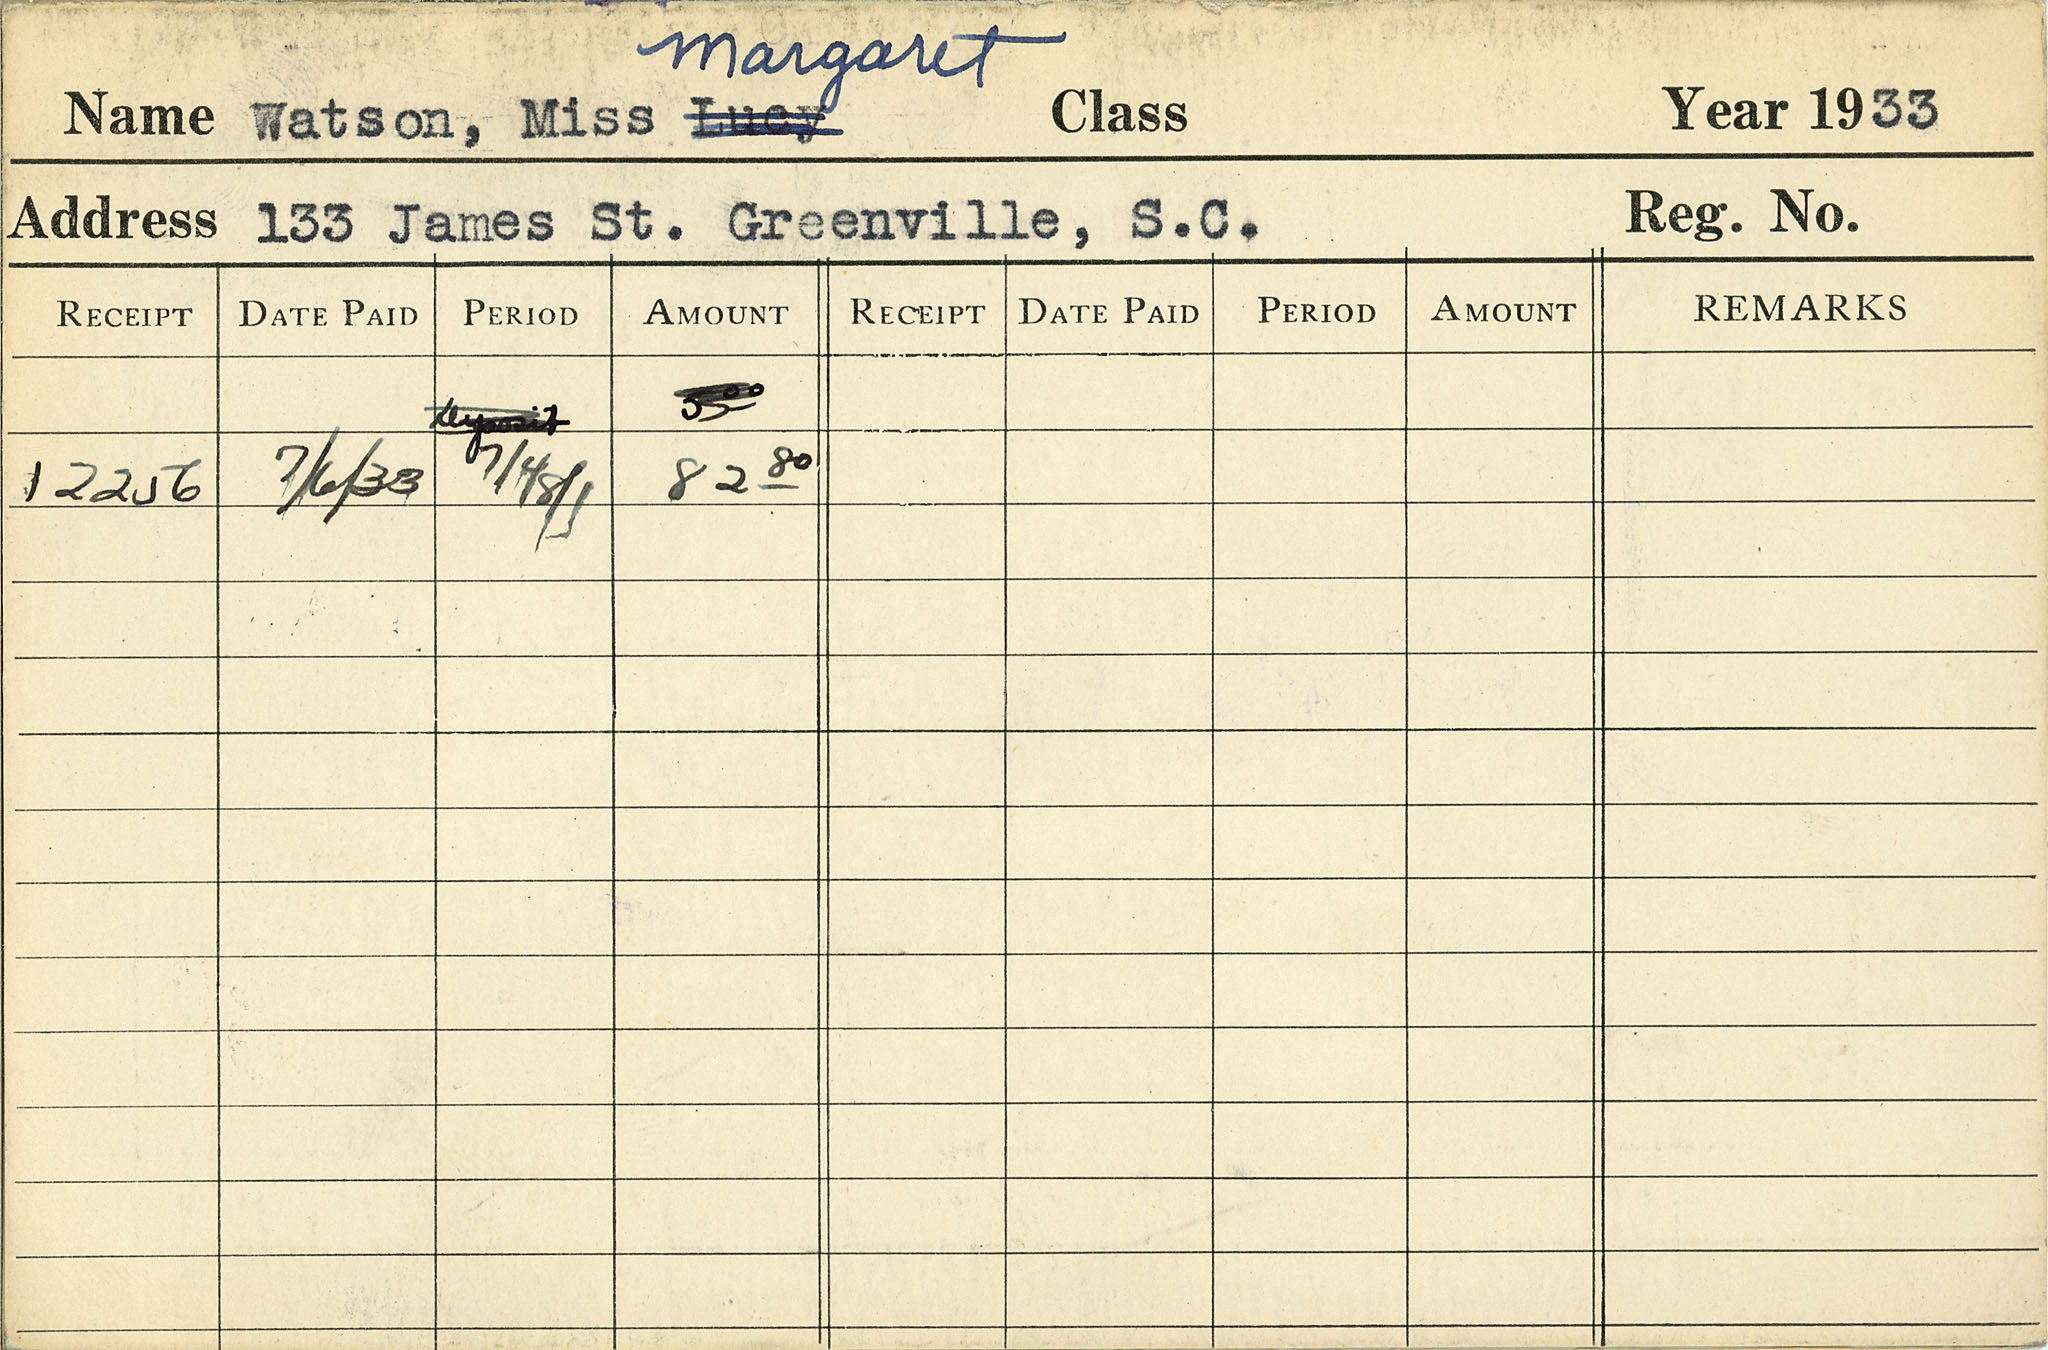 Margaret
Name Watson, Miss Lucy Class Year 1933
Address 133 James St. Greenville, S.C. Reg. No.
RECEIPT DATE PAID PERIOD AMOUNT RECEIPT DATE PAID PERIOD AMOUNT REMARKS
Deposit 5 00
12256 7/6/33 7/4 8/1 82 80